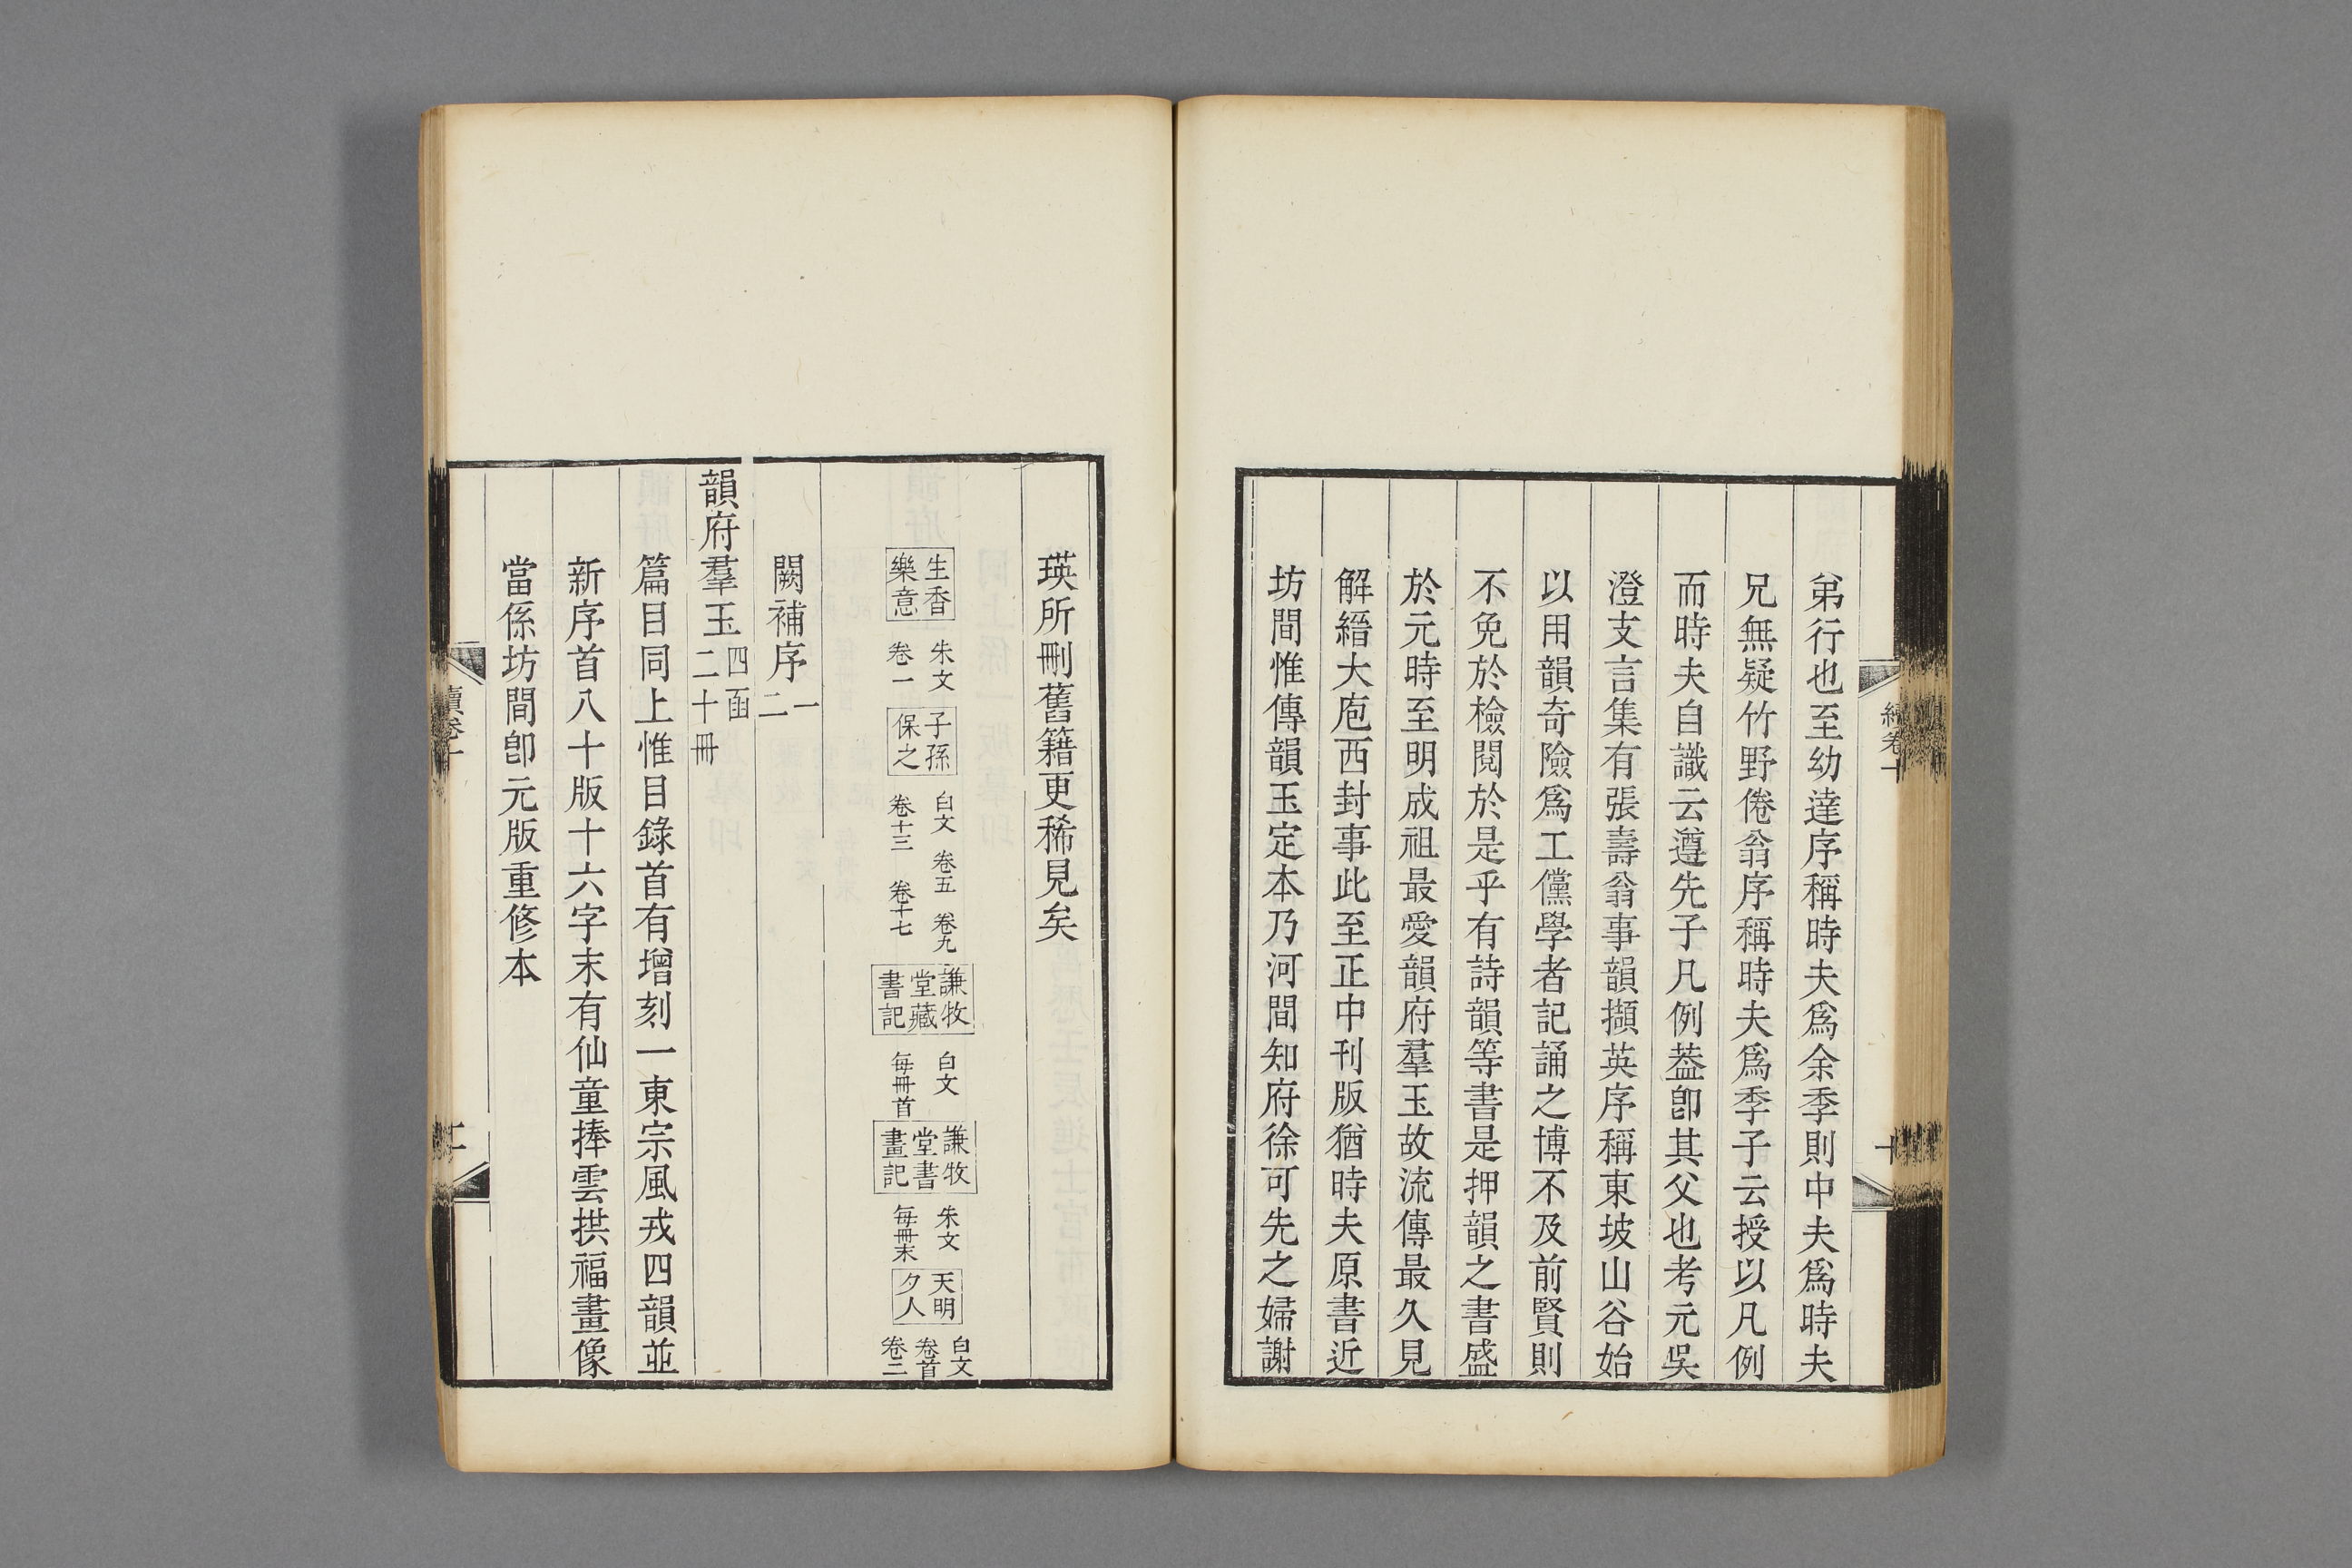 弟行也至幼達序稱時夫爲余季則中夫爲時夫
兄無疑竹野倦翁序稱時夫爲季子云授以凡例
而時夫自識云遵先子凡例葢卽其父也考元吳
澄支言集有張壽翁事韻擷英序稱東坡山谷始
以用韻奇險爲工儻學者記誦之博不及前賢則
不免於檢閱於是乎有詩韻等書是押韻之書盛
於元時至明成祖最愛韻府羣玉故流傳最久見
解縉大庖西封事此至正中刊版猶時夫原書近
坊間惟傳韻玉定本乃河間知府徐可先之婦謝
續卷十
十
瑛所刪舊籍更稀見矣
生香
樂意
朱文
卷一
子孫
保之
白文 卷五 卷九
卷十三 卷十七
謙牧
堂藏
書記
白文
每冊首
謙牧
堂書
畫記
朱文
每冊末
天明
夕人
白文
卷首
卷二
闕補序
一
二
韻府羣玉
四函
二十冊
篇目同上惟目錄首有增刻一東宗風戎四韻並
新序首八十版十六字末有仙童捧雲拱福畫像
當係坊間卽元版重修本
續卷十